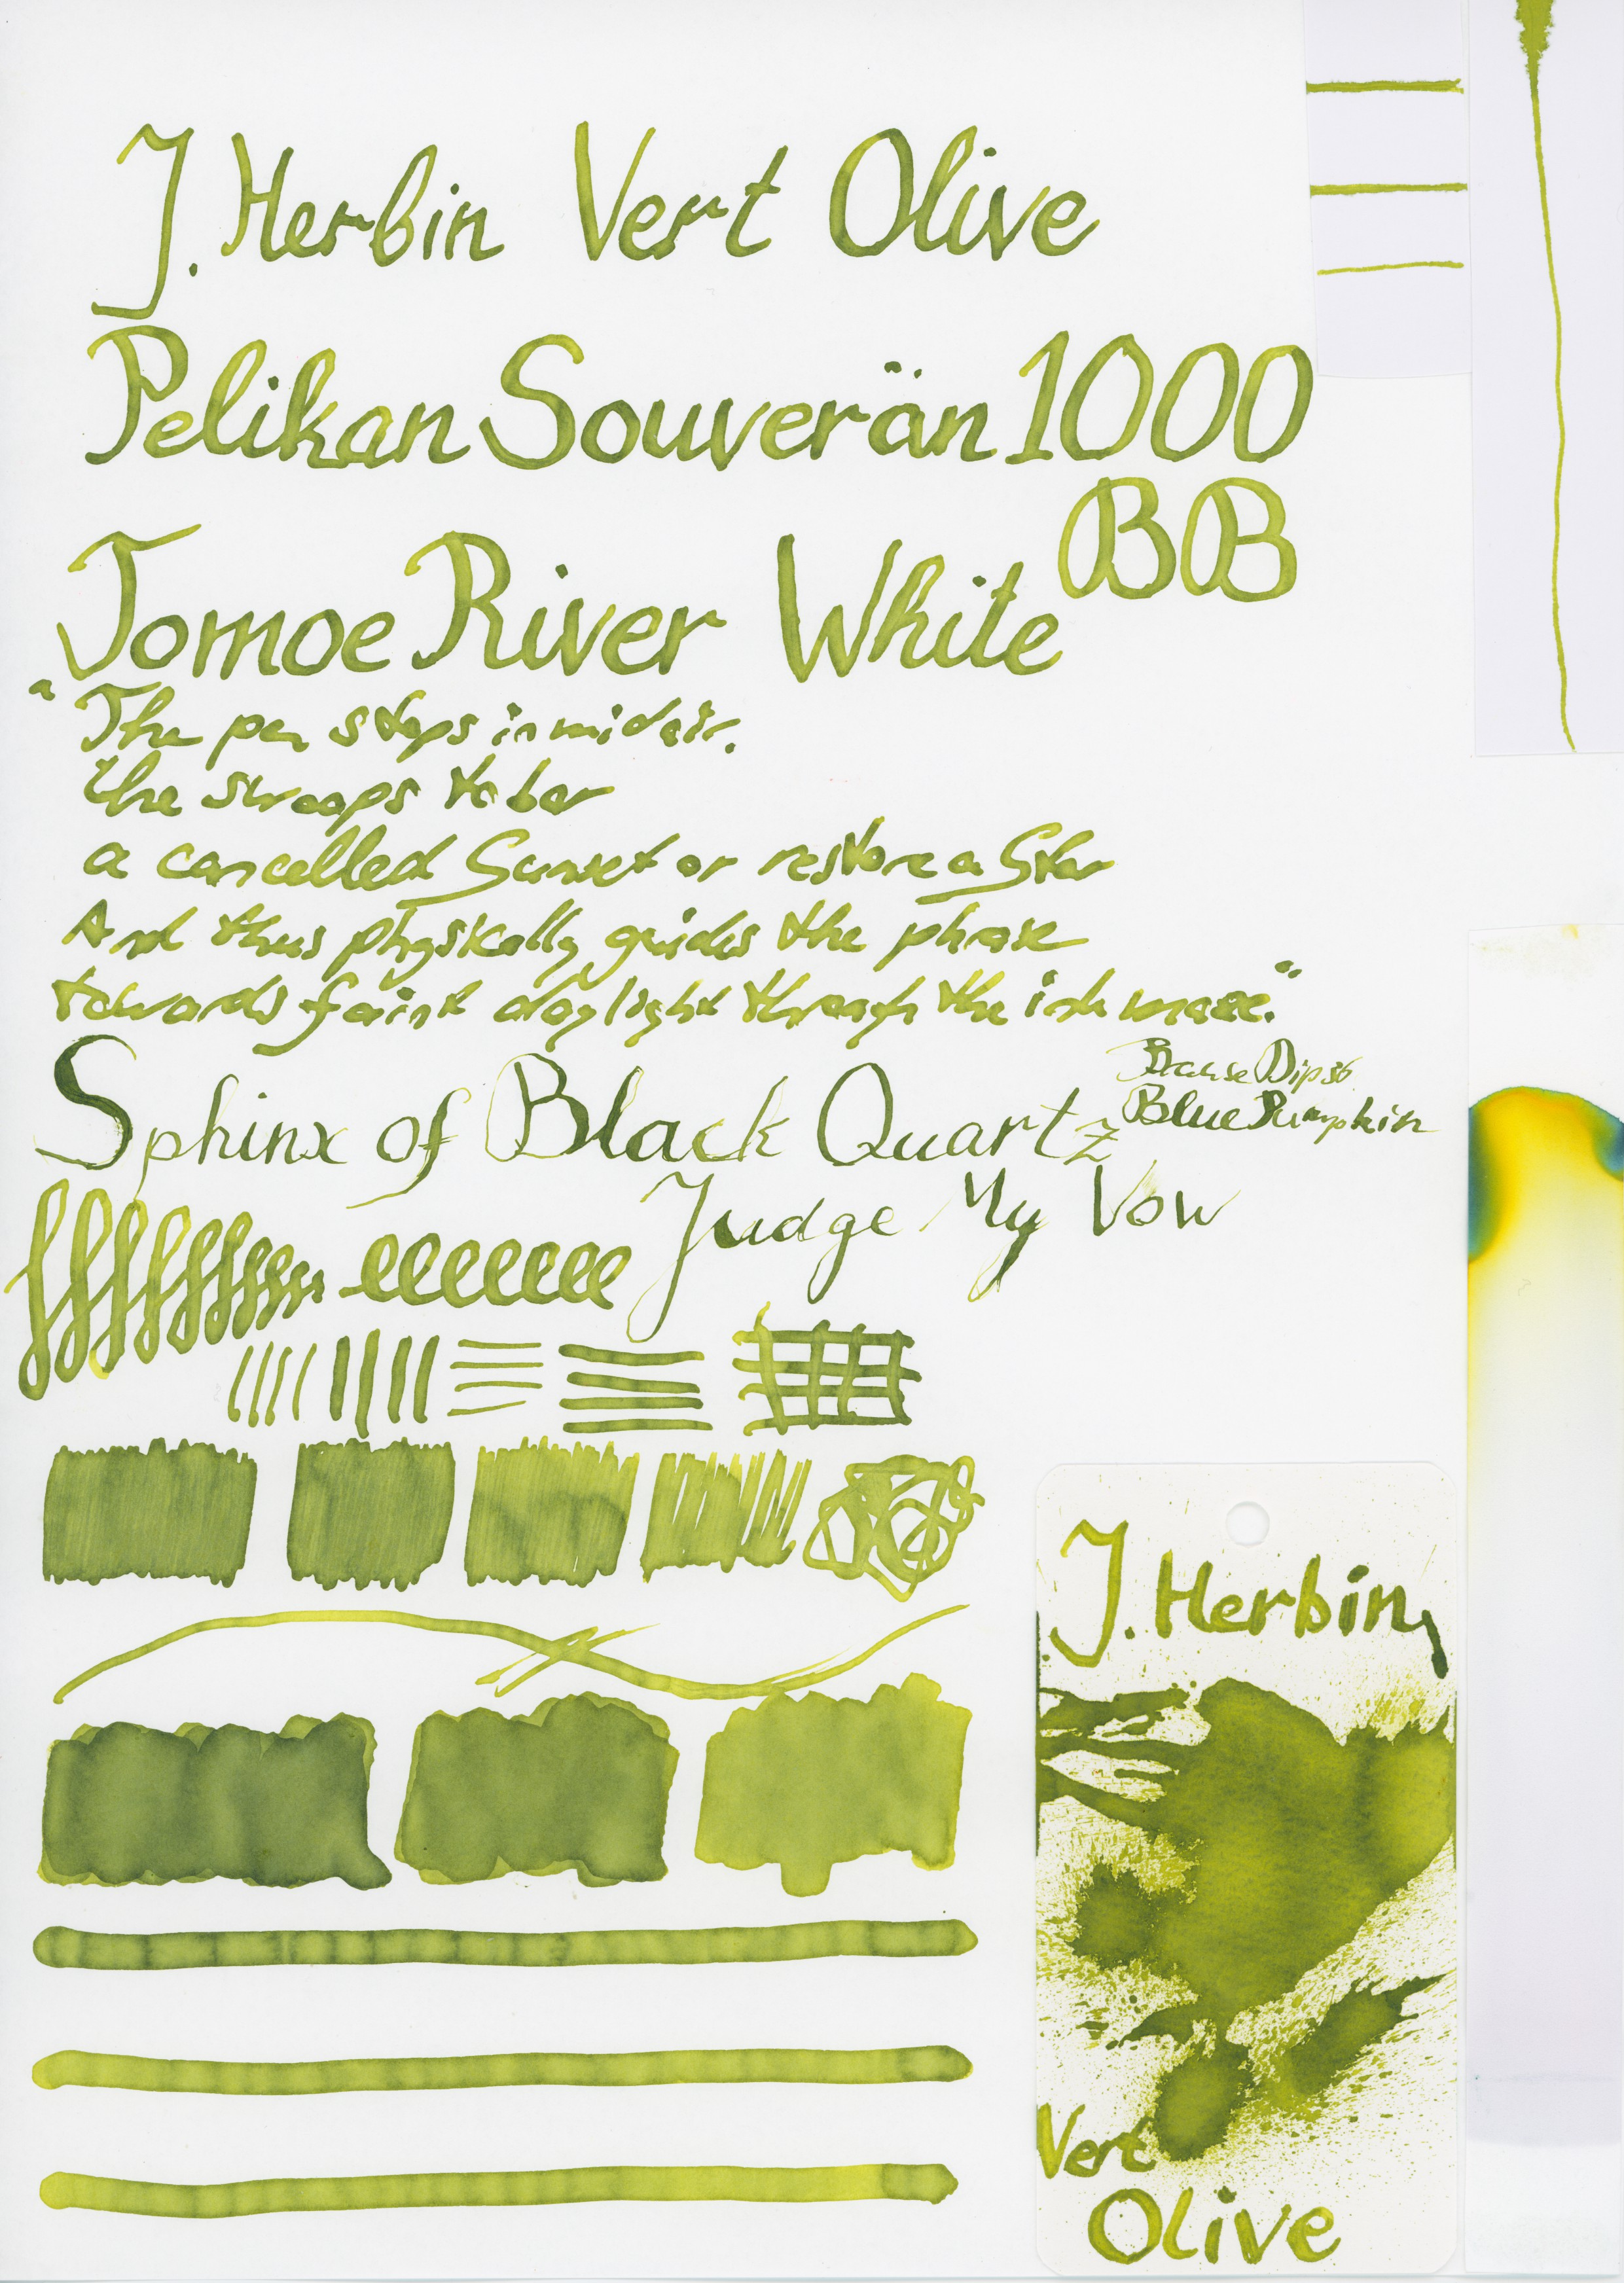 J. Herbin Vert Olive
Pelikan Souverän 1000
BB
Tomoe River White
"The pen stops in midair.
the swoops to bar
a cancelled Sunset or restore a Star
And thus physically guides the phrase
towards faint daylight through the ink maze."
Sphinx of Black Quartz
Brause Dip 36
Blue Pumpkin
Judge My Vow
J. Herbin
Vert
Olive